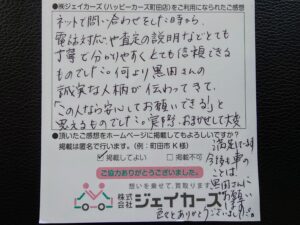 ●㈱ジェイカーズ(ハッピーカーズ町田店)をご利用になられたご感想
ネットで問い合わせをした時から、
電話対応や査定の説明などとても
丁寧で分かりやすくとても信頼できる
ものでした。何より黒田さんの
誠実な人柄が伝わってきて、
「この人なら安心してお願いできる」と
思えるものでした。実際、おまかせして大変
●頂いたご感想をホームページに掲載してもよろしいですか?
掲載は匿名で行います。(例:町田市K様)
掲載してよい
掲載不可
満足です。
今後も車の
ことは
黒田さんに
お願い
ご協力ありがとうございました。
想いを乗せて、買取ります
株式会社ジェイカーズ
ありがとうございました。